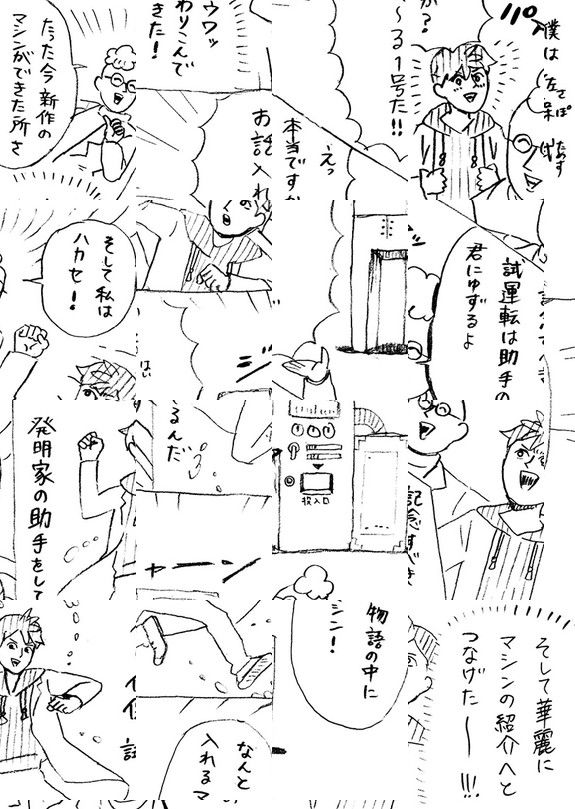 僕は
か?
〜る1号だ!!
えっ
本当ですか
お話入れ
ウワッ
わりこんで
きた!
たった今 新作の
マシンができた所さ
試運転は助手の
君にゆずるよ
はい
そして私は
ハカセ!
記念すべき
投入口
るんだ
ャーン
発明家の助手をして
そして華麗に
マシンの紹介へと
つなげた〜!!!
物語の中に
シン!
なんと
入れるマ